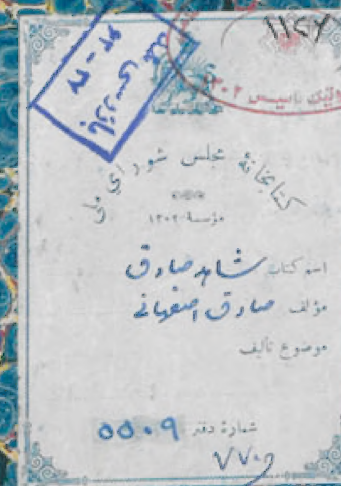 ۱۱۴۷
بازرسی شد
۳۷ - ۶۴
تاسیس ۱۳۰۲
کتابخانهٔ مجلس شورای ملی
مؤسسهٔ ۱۳۰۲
اسم کتاب شاهد صادق
مؤلف صادق اصفهانی
موضوع تألیف
شمارهٔ دفتر ۵۵۰۹